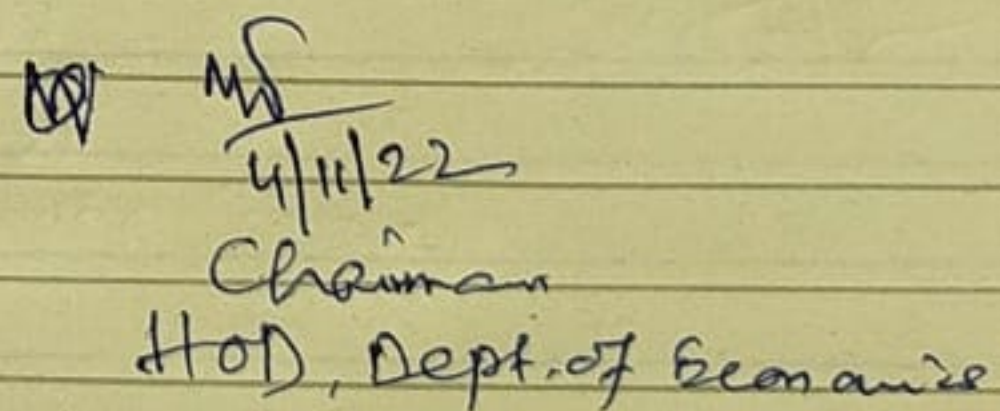 4/11/22
Chairman
HOD, Dept. of Economics